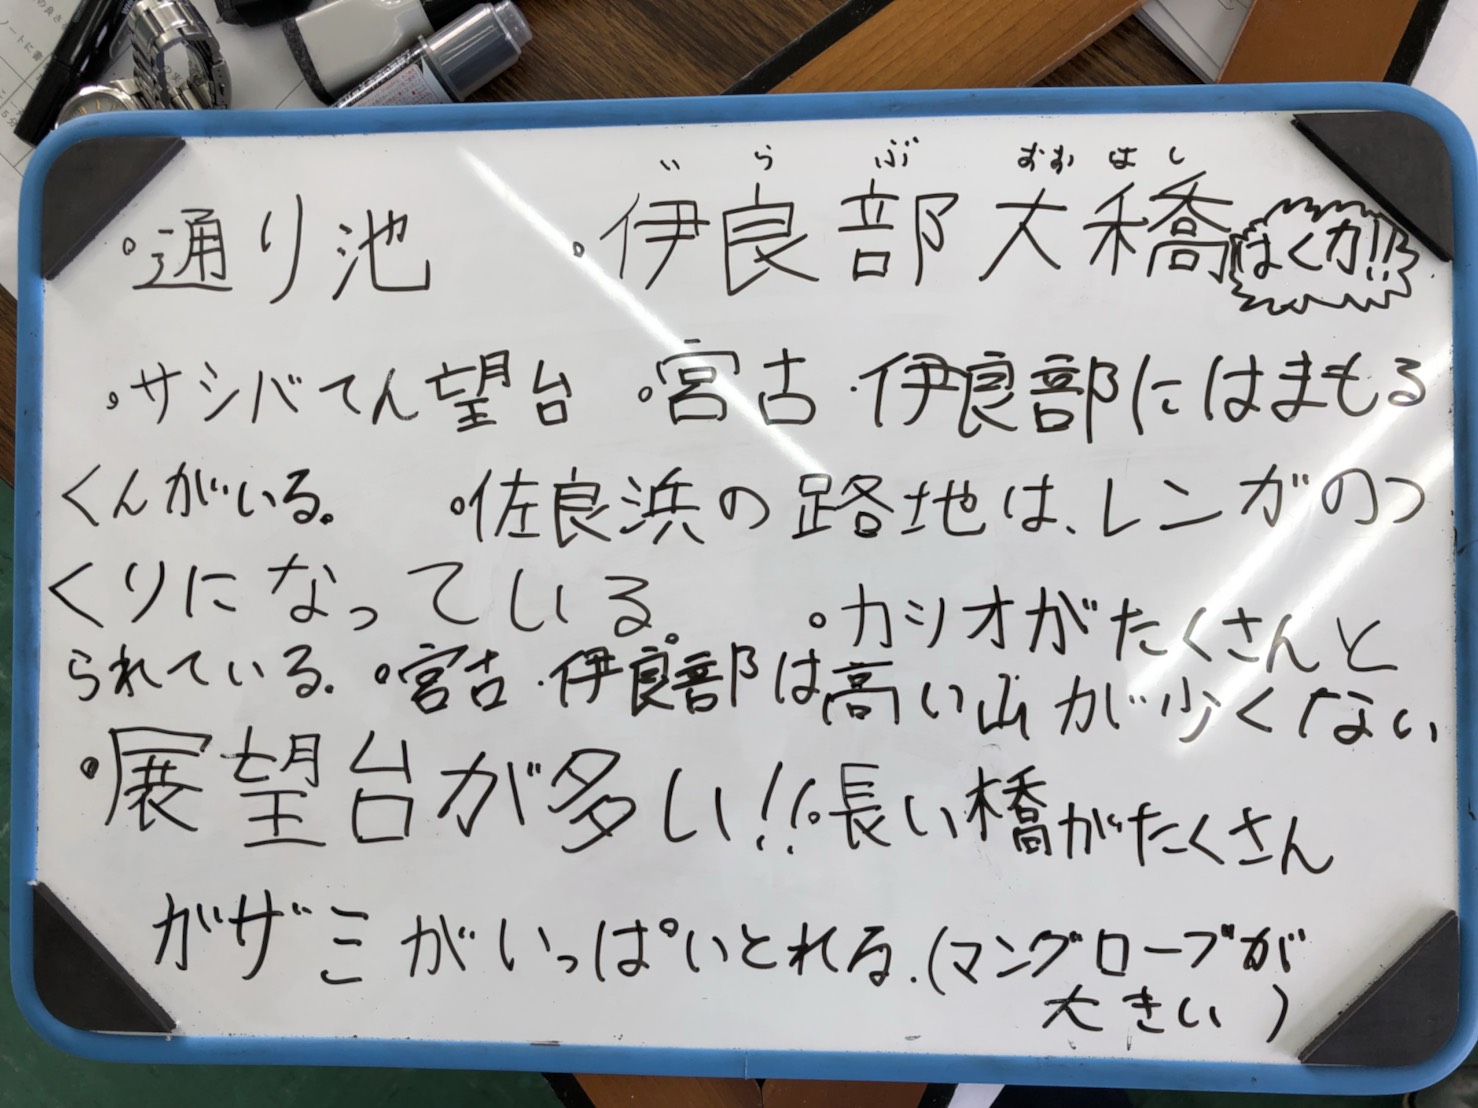 いらぶ おおはし
。通り池 。伊良部大橋 はくカ!!
。サシバてん望台 。宮古・伊良部にはまもる
くんがいる。 。佐良浜の路地は、レンガのつ
くりになっている。 。カシオがたくさんと
られている。 。宮古・伊良部は高い山が少くない
。展望台が多い!! 。長い橋がたくさん
ガザミがいっぱいとれる。(マングローブが
大きい)